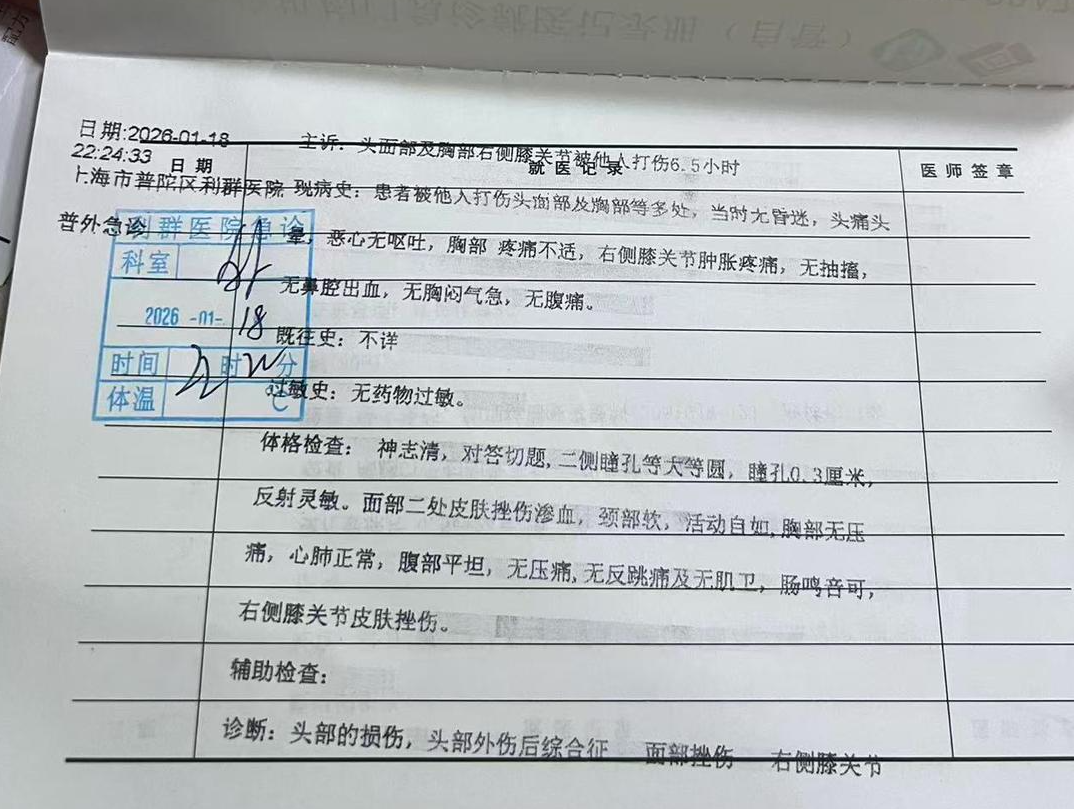 日期:2026-01-18
22:24:33
上海市普陀区利群医院
普外急诊
日期
就医记录
医师签章
利群医院急诊
科室
2026-01-18
时间 22时20分
体温 ℃
主诉：头面部及胸部右侧膝关节被他人打伤6.5小时
现病史：患者被他人打伤头面部及胸部等多处，当时无昏迷，头痛头
晕，恶心无呕吐，胸部 疼痛不适，右侧膝关节肿胀疼痛，无抽搐，
无鼻腔出血，无胸闷气急，无腹痛。
既往史：不详
过敏史：无药物过敏。
体格检查： 神志清，对答切题,二侧瞳孔等大等圆，瞳孔0.3厘米，
反射灵敏。面部二处皮肤挫伤渗血，颈部软，活动自如,胸部无压
痛，心肺正常，腹部平坦，无压痛,无反跳痛及无肌卫，肠鸣音可，
右侧膝关节皮肤挫伤。
辅助检查：
诊断：头部的损伤，头部外伤后综合征 面部挫伤 右侧膝关节